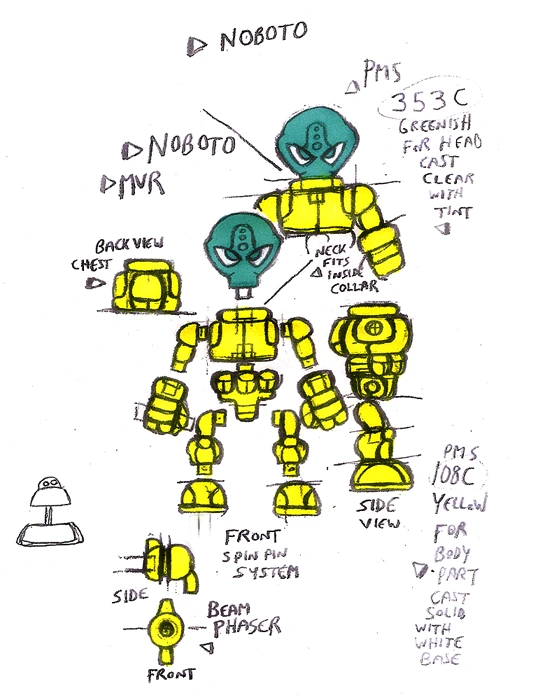 NOBOTO
PMS
353C
GREENISH
FOR HEAD
CAST
CLEAR
WITH
TINT
NOBOTO
MVR
BACK VIEW
CHEST
NECK
FITS
INSIDE
COLLAR
SIDE
VIEW
PMS
108C
YELLOW
FOR
BODY
PART
CAST
SOLID
WITH
WHITE
BASE
FRONT
SPIN PIN
SYSTEM
SIDE
BEAM
PHASER
FRONT